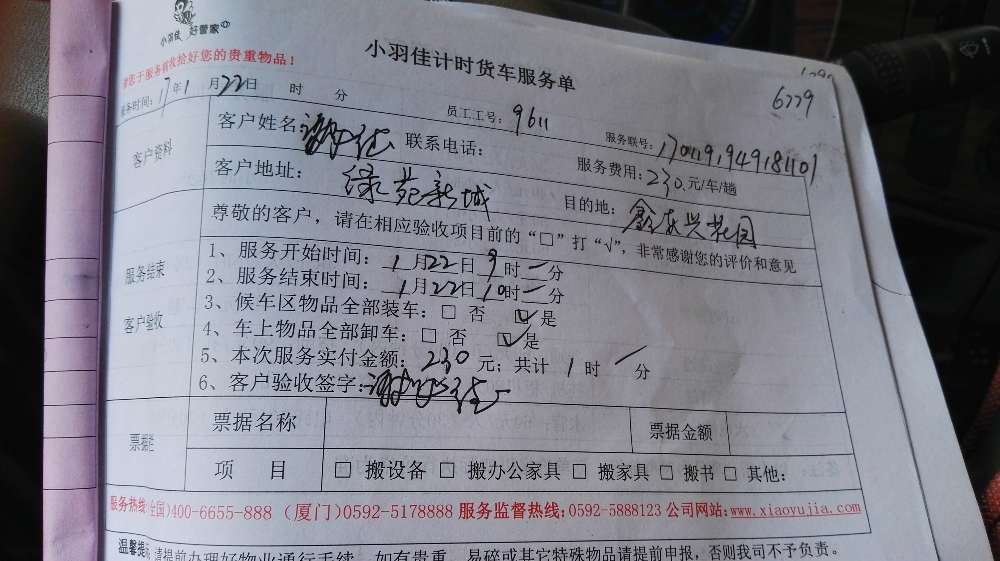 小羽佳 好管家
小羽佳计时货车服务单
您于服务前收拾好您的贵重物品!
6779
服务时间: 17年1月22日 时 分 员工工号: 9611 服务联号: 170119194918401
客户资料
客户姓名: 联系电话: 服务费用: 230元/车/趟
客户地址: 绿苑新城 目的地: 鑫东兴花园
尊敬的客户,请在相应验收项目前的“□”打“√”,非常感谢您的评价和意见
服务结束
客户验收
1、服务开始时间: 1月22日9时一分
2、服务结束时间: 1月22日10时一分
3、候车区物品全部装车: □ 否 ☑ 是
4、车上物品全部卸车: □ 否 ☑ 是
5、本次服务实付金额: 230元; 共计 1 时 一 分
6、客户验收签字:
票据栏
票据名称 票据金额
项 目 □ 搬设备 □ 搬办公家具 □ 搬家具 □ 搬书 □ 其他:
服务热线:(全国)400-6655-888 (厦门)0592-5178888 服务监督热线:0592-5888123 公司网站:www.xiaoyujia.com
温馨提示 请提前办理好物业通行手续,如有贵重、易碎或其它特殊物品请提前申报,否则我司不予负责。